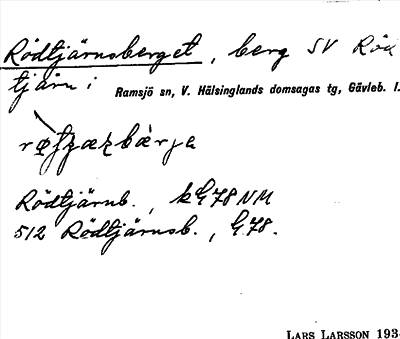 Rödtjärnsberget, berg SV Röd
tjärn i
Ramsjö sn, V. Hälsinglands domsagas tg, Gävleb. l.
Rödtjärnb., kG78 NM
512 Rödtjärnsb., G.78.
LARS LARSSON 193